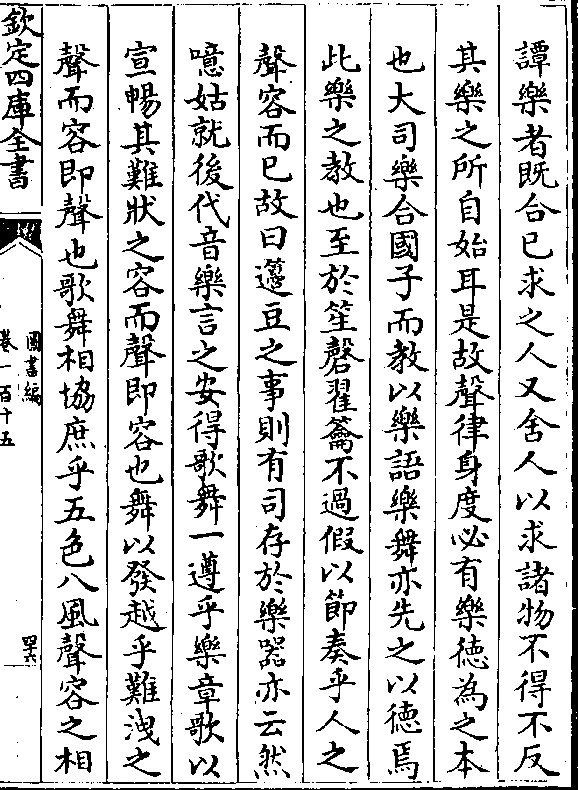 譚樂者既合已求之人又舍人以求諸物不得不反
其樂之所自始耳是故聲律身度必有樂徳為之本
也大司樂合國子而教以樂語樂舞亦先之以徳焉
此樂之教也至於笙磬翟籥不過假以節奏乎人之
聲容而已故曰籩豆之事則有司存於樂器亦云然
噫姑就後代音樂言之安得歌舞一遵乎樂章歌以
宣暢其難狀之容而聲即容也舞以發越乎難洩之
聲而容即聲也歌舞相協庶乎五色八風聲容之相
欽定四庫全書
圖書編
卷一百十五
四六